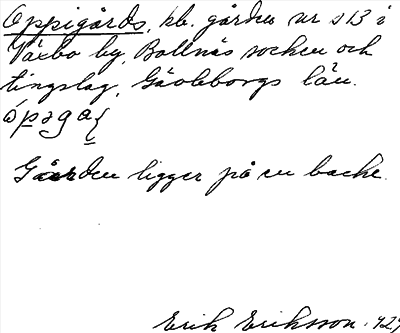 Oppigårds, kb. gården nr 13 i
Växbo by, Bollnäs socken och
tingslag, Gävleborgs län.
Gården ligger på en backe.
Erik Eriksson